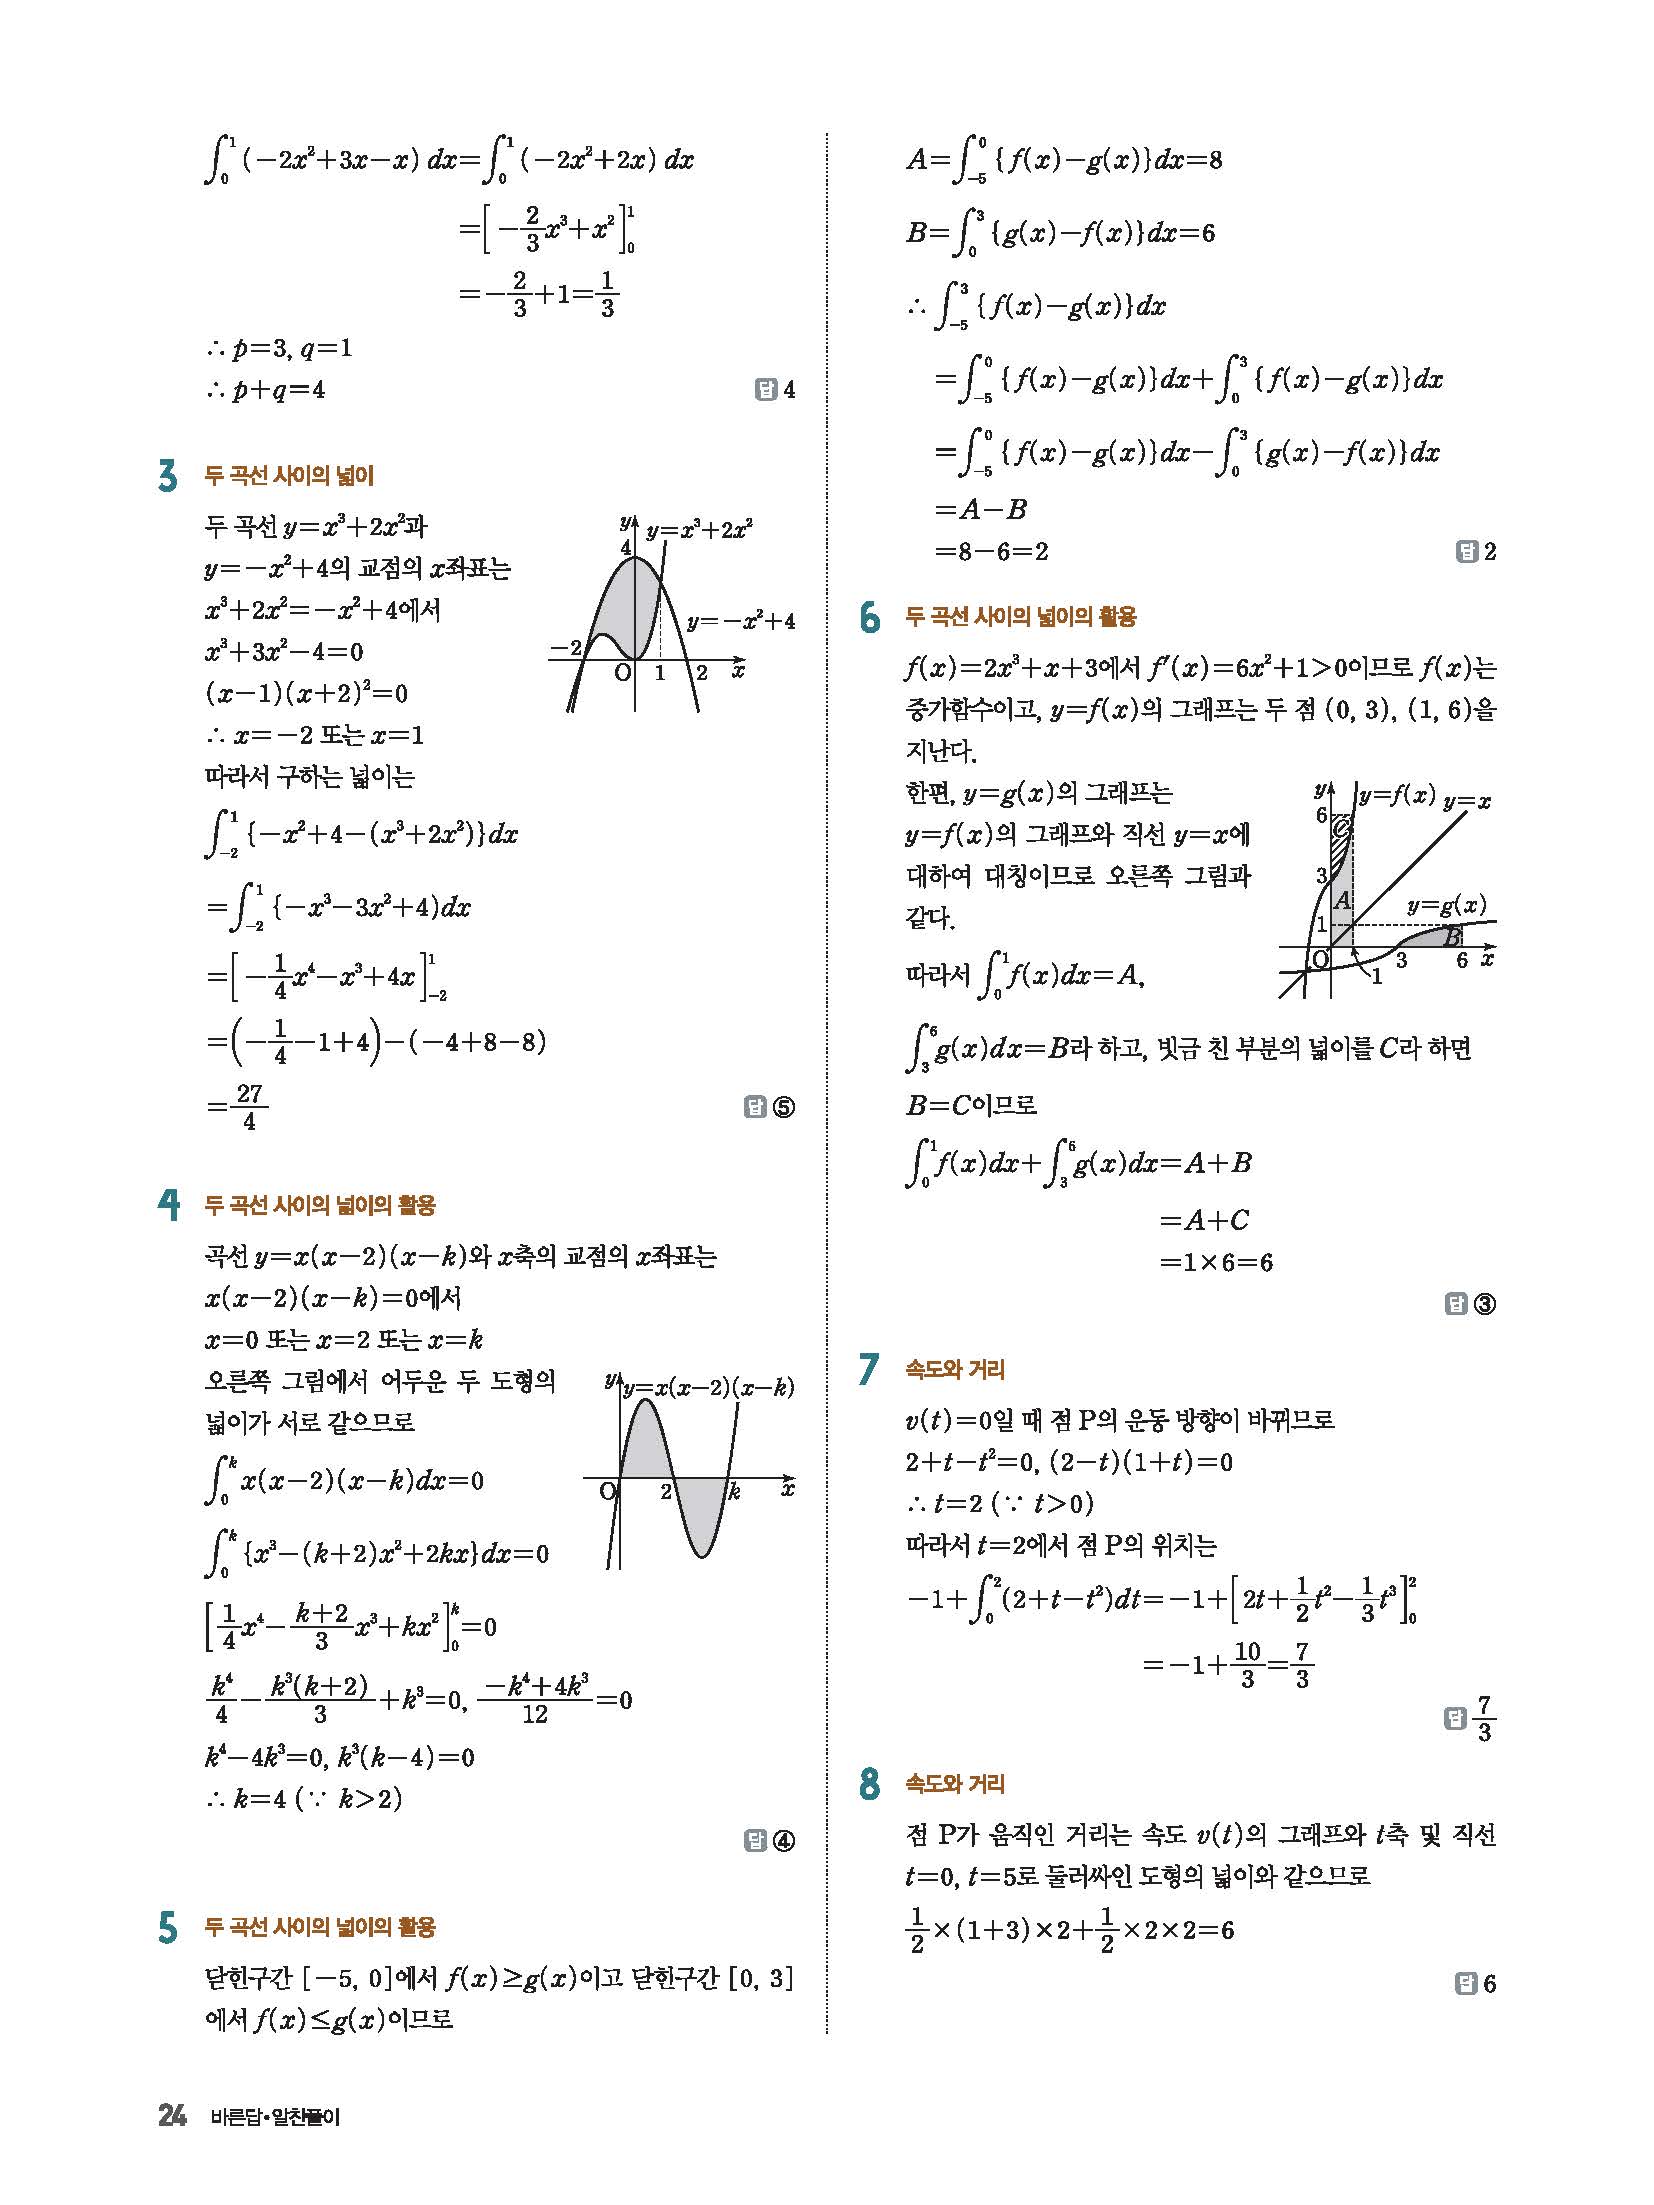 ∫₀¹(−2x²+3x−x) dx=∫₀¹(−2x²+2x) dx
=[−2/3x³+x²]₀¹
=−2/3+1=1/3
∴ p=3, q=1
∴ p+q=4 답 4
3 두 곡선 사이의 넓이
두 곡선 y=x³+2x²과
y=−x²+4의 교점의 x좌표는
x³+2x²=−x²+4에서
x³+3x²−4=0
(x−1)(x+2)²=0
∴ x=−2 또는 x=1
따라서 구하는 넓이는
y
y=x³+2x²
4
y=−x²+4
−2
O 1 2 x
∫₋₂¹{−x²+4−(x³+2x²)}dx
=∫₋₂¹{−x³−3x²+4)dx
=[−1/4x⁴−x³+4x]₋₂¹
=(−1/4−1+4)−(−4+8−8)
=27/4 답 ⑤
4 두 곡선 사이의 넓이의 활용
곡선 y=x(x−2)(x−k)와 x축의 교점의 x좌표는
x(x−2)(x−k)=0에서
x=0 또는 x=2 또는 x=k
오른쪽 그림에서 어두운 두 도형의
넓이가 서로 같으므로
y
y=x(x−2)(x−k)
O 2 k x
∫₀ᵏx(x−2)(x−k)dx=0
∫₀ᵏ{x³−(k+2)x²+2kx}dx=0
[1/4x⁴−(k+2)/3x³+kx²]₀ᵏ=0
k⁴/4−k³(k+2)/3+k³=0, (−k⁴+4k³)/12=0
k⁴−4k³=0, k³(k−4)=0
∴ k=4 (∵ k>2)
답 ④
5 두 곡선 사이의 넓이의 활용
닫힌구간 [−5, 0]에서 f(x)≥g(x)이고 닫힌구간 [0, 3]
에서 f(x)≤g(x)이므로
A=∫₋₅⁰{f(x)−g(x)}dx=8
B=∫₀³{g(x)−f(x)}dx=6
∴ ∫₋₅³{f(x)−g(x)}dx
=∫₋₅⁰{f(x)−g(x)}dx+∫₀³{f(x)−g(x)}dx
=∫₋₅⁰{f(x)−g(x)}dx−∫₀³{g(x)−f(x)}dx
=A−B
=8−6=2 답 2
6 두 곡선 사이의 넓이의 활용
f(x)=2x³+x+3에서 f′(x)=6x²+1>0이므로 f(x)는
증가함수이고, y=f(x)의 그래프는 두 점 (0, 3), (1, 6)을
지난다.
한편, y=g(x)의 그래프는
y=f(x)의 그래프와 직선 y=x에
대하여 대칭이므로 오른쪽 그림과
같다.
y
y=f(x) y=x
6
C
3
A
y=g(x)
1
B
O 3 6 x
1
따라서 ∫₀¹f(x)dx=A,
∫₃⁶g(x)dx=B라 하고, 빗금 친 부분의 넓이를 C라 하면
B=C이므로
∫₀¹f(x)dx+∫₃⁶g(x)dx=A+B
=A+C
=1×6=6
답 ③
7 속도와 거리
v(t)=0일 때 점 P의 운동 방향이 바뀌므로
2+t−t²=0, (2−t)(1+t)=0
∴ t=2 (∵ t>0)
따라서 t=2에서 점 P의 위치는
−1+∫₀²(2+t−t²)dt=−1+[2t+1/2t²−1/3t³]₀²
=−1+10/3=7/3
답 7/3
8 속도와 거리
점 P가 움직인 거리는 속도 v(t)의 그래프와 t축 및 직선
t=0, t=5로 둘러싸인 도형의 넓이와 같으므로
1/2×(1+3)×2+1/2×2×2=6
답 6
24 바른답•알찬풀이